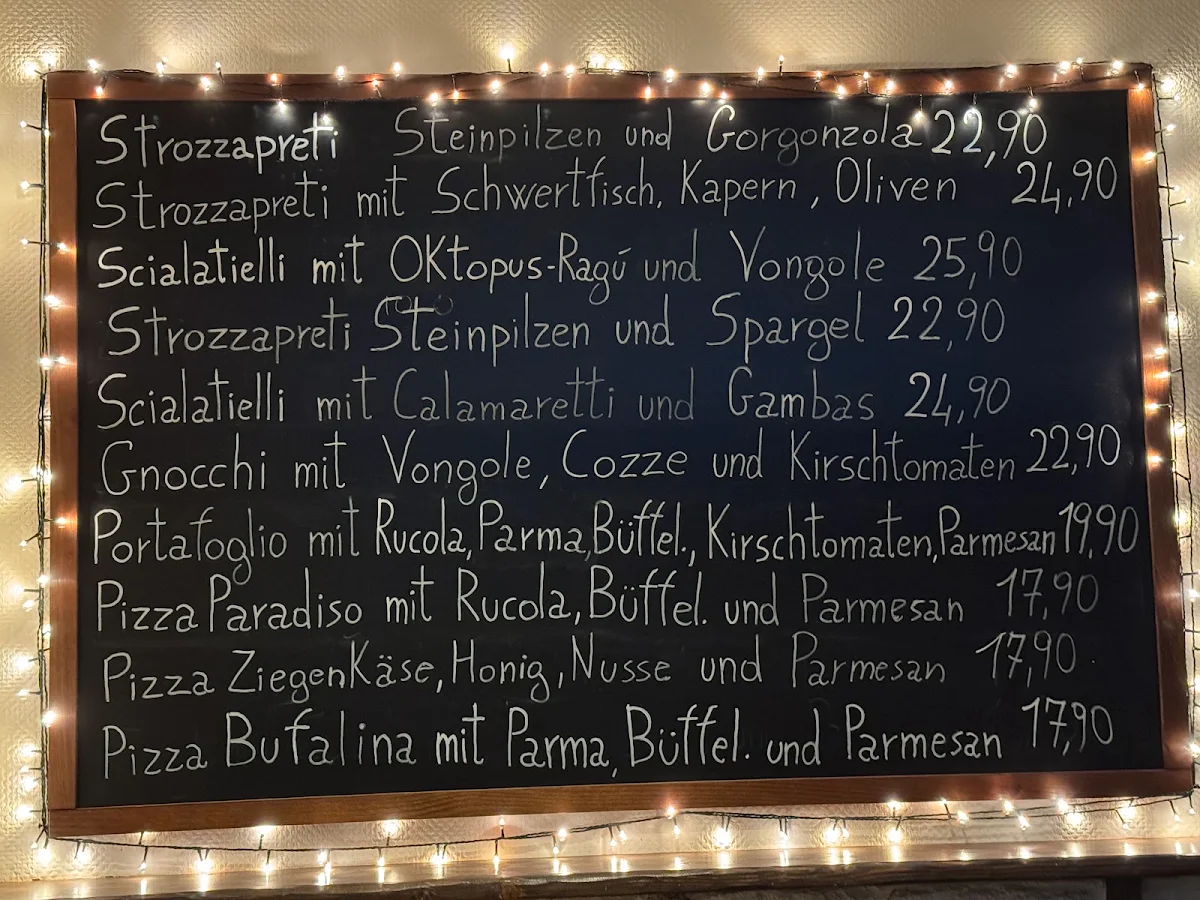 Strozzapreti Steinpilzen und Gorgonzola 22,90
Strozzapreti mit Schwertfisch, Kapern, Oliven 24,90
Scialatielli mit Oktopus-Ragú und Vongole 25,90
Strozzapreti Steinpilzen und Spargel 22,90
Scialatielli mit Calamaretti und Gambas 24,90
Gnocchi mit Vongole, Cozze und Kirschtomaten 22,90
Portafoglio mit Rucola, Parma, Büffel., Kirschtomaten, Parmesan 19,90
Pizza Paradiso mit Rucola, Büffel. und Parmesan 17,90
Pizza Ziegenkäse, Honig, Nusse und Parmesan 17,90
Pizza Bufalina mit Parma, Büffel. und Parmesan 17,90